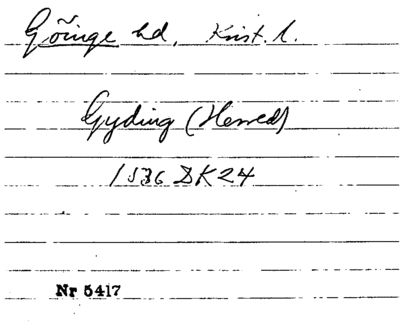 Göinge hd, Krist. l.
Gyding (Herred)
1536 DK24
Nr 5417